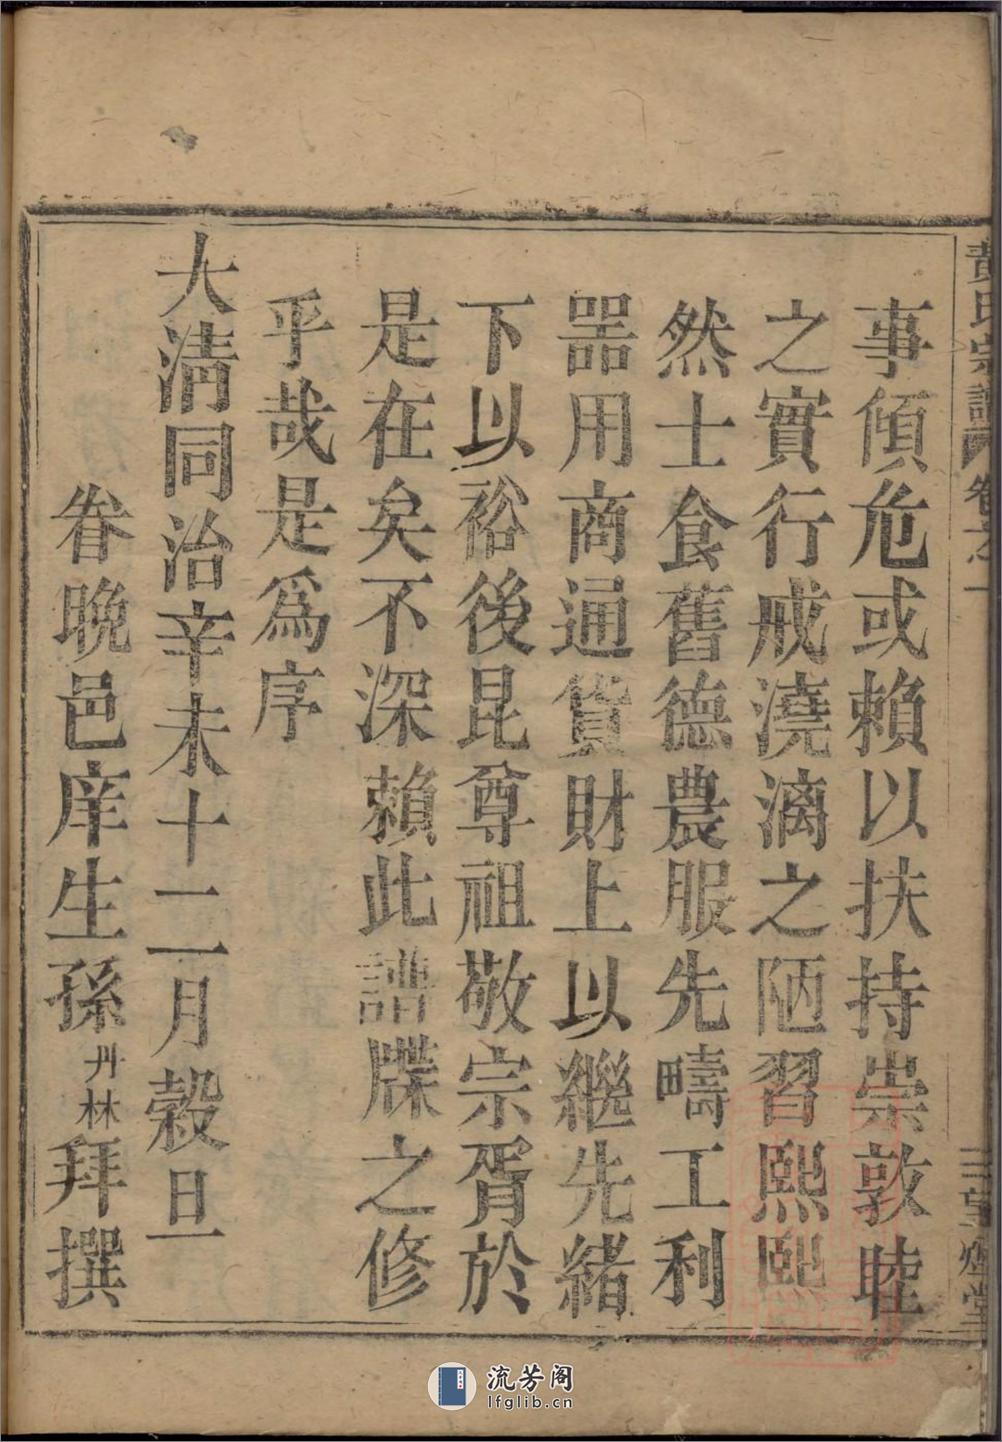 黄氏宗譜
卷之一
事傾危或賴以扶持崇敦睦
之實行戒澆漓之陋習熙熙
然士食舊德農服先疇工利
器用商通貨財上以繼先緒
下以裕後昆尊祖敬宗胥於
是在矣不深賴此譜牒之修
乎哉是爲序
大清同治辛未十二月穀旦
眷晚邑庠生孫丹林拜撰
流芳阁
lfglib.cn